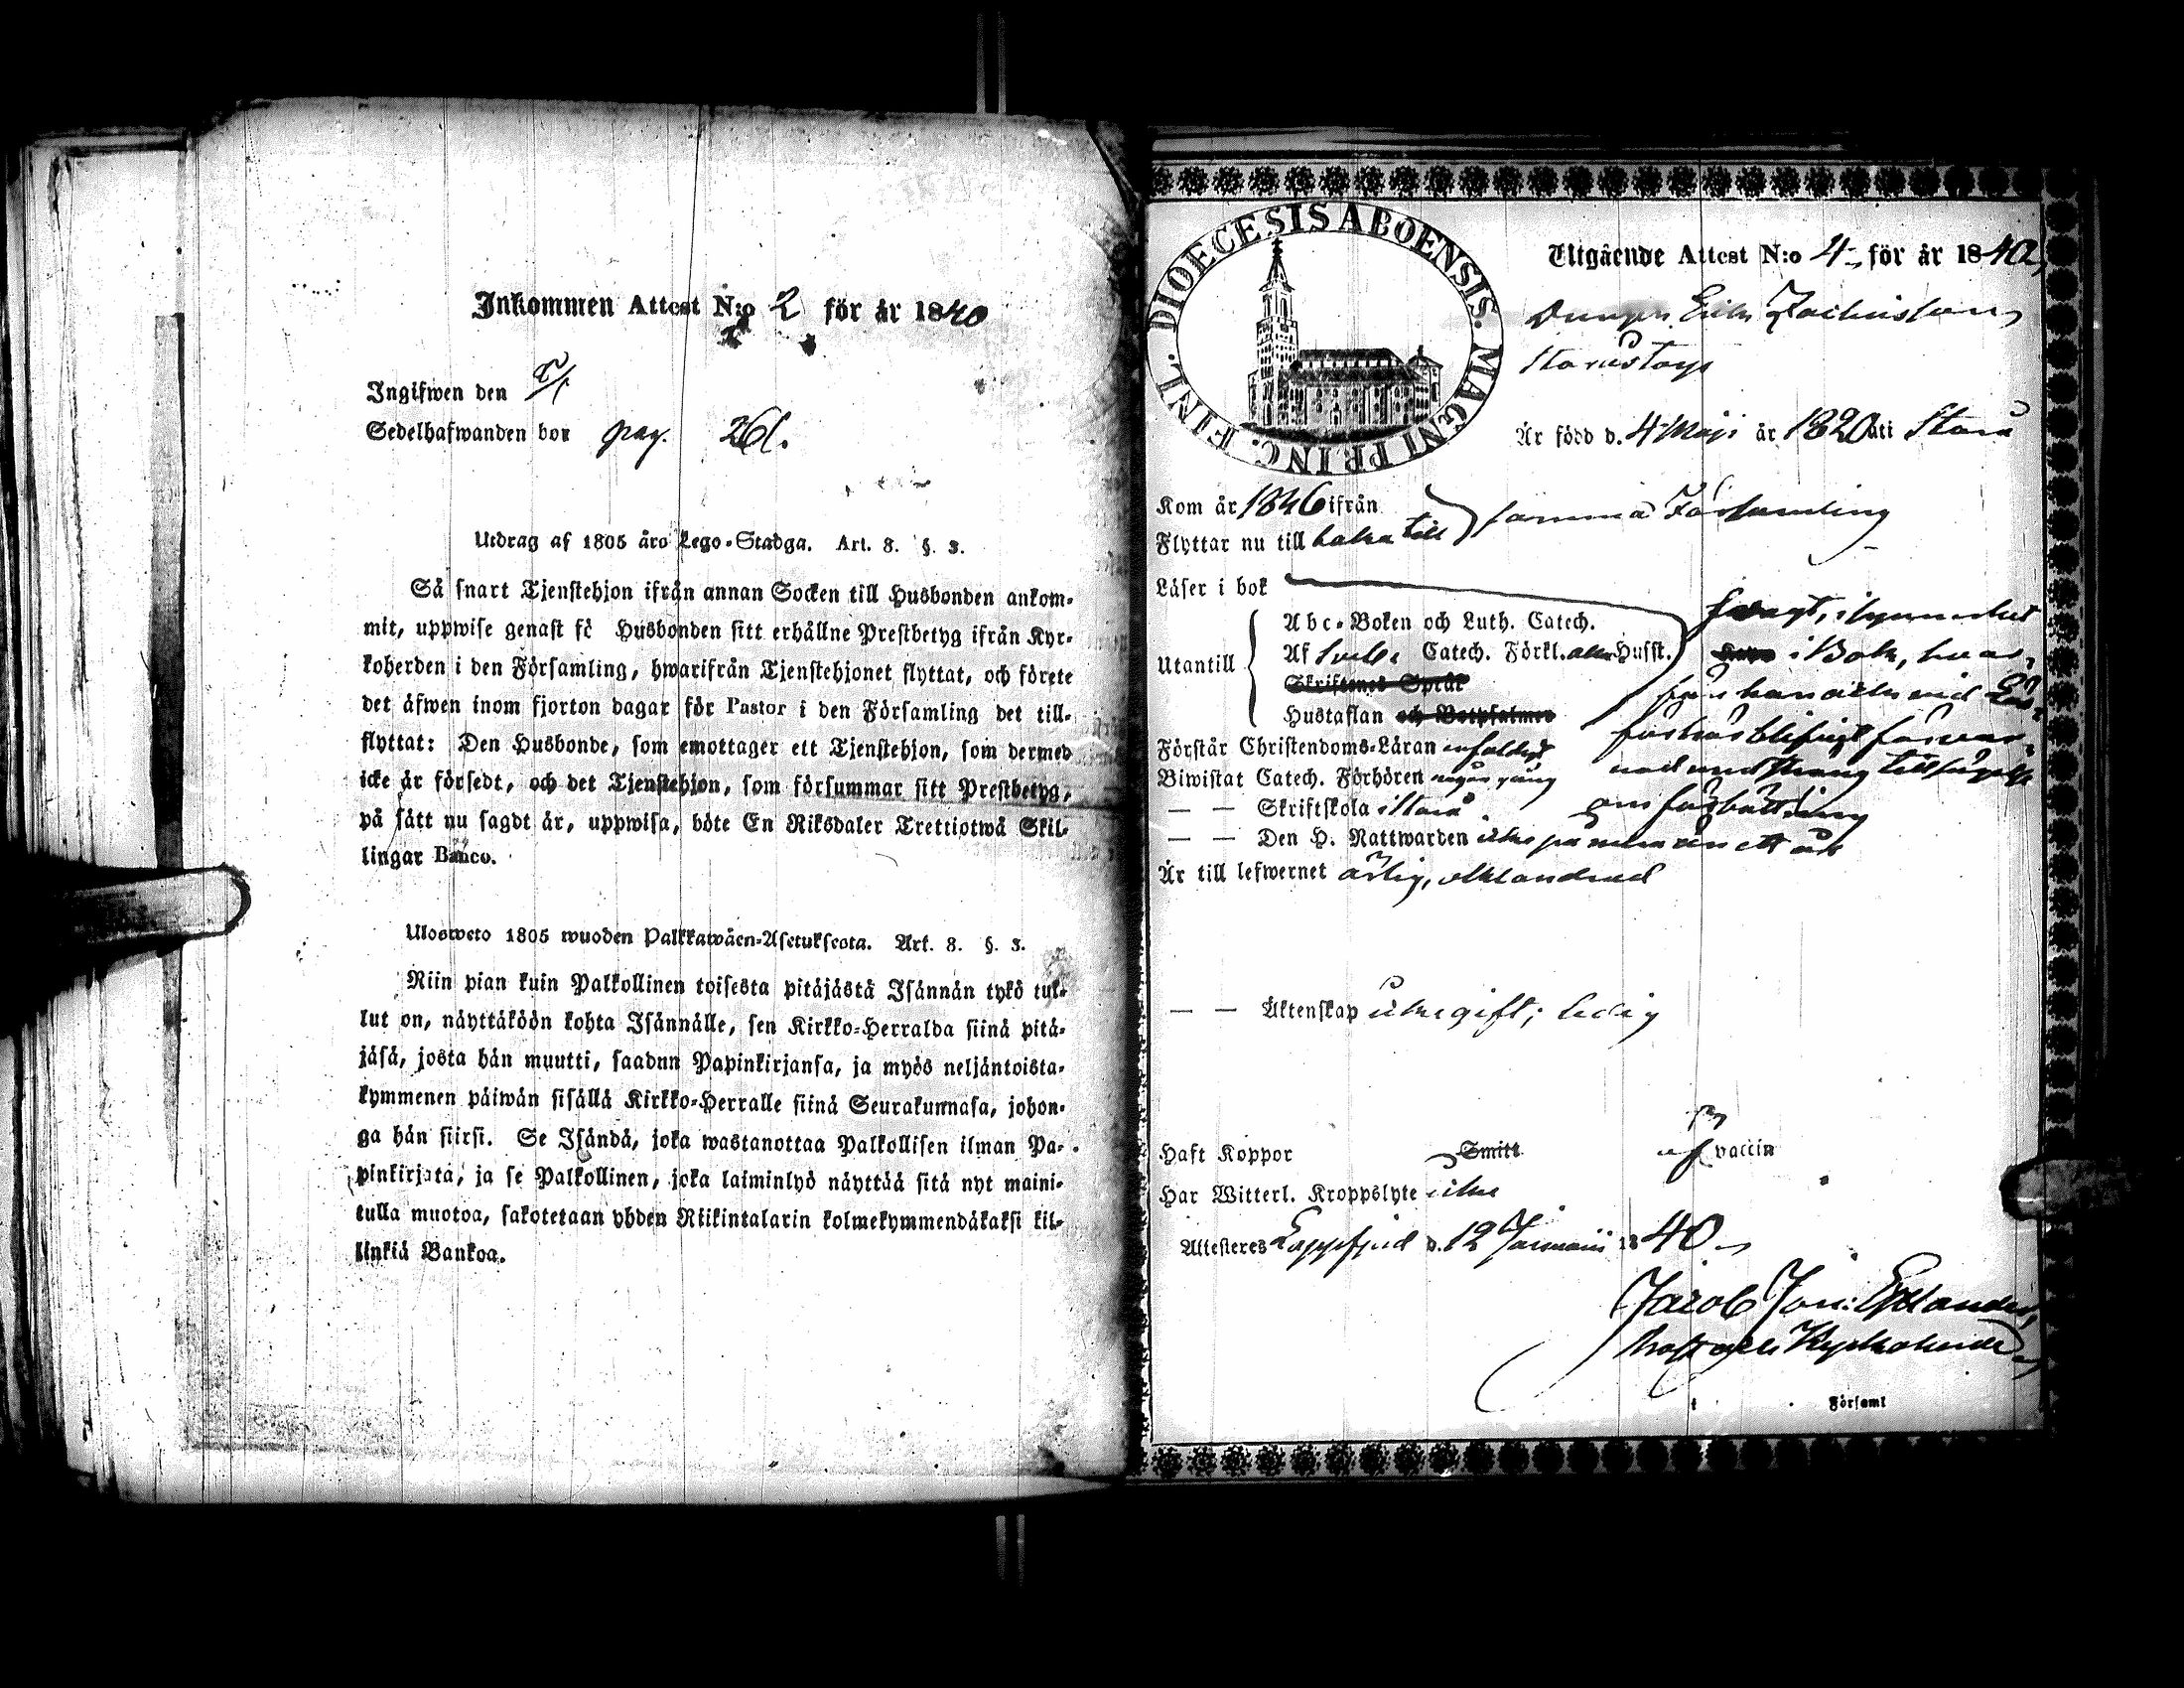 Inkommen Attest N:o 2 för år 1840
Ingifwen den
Sedelhafwanden bor pag. 261.
Utdrag af 1805 års Lego-Stadga. Art. 8. §. 3.
Så snart Tjenstehjon ifrån annan Socken till Husbonden ankom-
mit, uppwise genast fö Husbonden sitt erhållne Prestbetyg ifrån Kyr-
koherden i den Församling, hwarifrån Tjenstehjonet flyttat, och förete
det äfwen inom fjorton dagar för Pastor i den Församling det till-
flyttat: Den Husbonde, som emottager ett Tjenstehjon, som dermed
icke är försedt, och det Tjenstehjon, som försummar sitt Prestbetyg,
på sätt nu sagdt är, uppwisa, böte En Riksdaler Trettiotwå Skil-
lingar Banco.
Ulosweto 1805 wuoden Palkkawäen-Asetuksesta. Art. 8. §. 3.
Niin pian kuin Palkollinen toisesta pitäjästä Isännän tykö tul-
lut on, näyttäköön kohta Isännälle, sen Kirkko-Herralda siinä pitä-
jäsä, josta hän muutti, saadun Papinkirjansa, ja myös neljäntoista-
kymmenen päiwän sisällä Kirkko-Herralle siinä Seurakunnasa, johon-
ga hän siirsi. Se Isändä, joka wastanottaa Palkollisen ilman Pa-
pinkirjata, ja se Palkollinen, joka laiminlyö näyttää sitä nyt maini-
tulla muotoa, sakotetaan yhden Riikintalarin kolmekymmendäkaksi kil-
linkiä Bankoa.
DIOECESIS ABOENSIS. MAGNI PRINC. FINL.
Utgående Attest N:o 4 för år 1840,
Drengen Erik Zachrisson
Är född d. 4 Maji år 1820 uti
Kom år 1846 ifrån
Flyttar nu till baka till samma Församling
Läser i bok
Utantill
Abc-Boken och Luth. Catech.
Af Catech. Förkl. Husst.
Skriftenes Språk
Hustaflan och Botpsalmer
i Bok, hvar-
Förstår Christendoms-Läran enfaldigt
Biwistat Catech. Förhören någon gång
— — Skriftskola
om förbättring
— — Den H. Nattwarden icke på mera än ett år
Är till lefwernet ärlig, oklandrad
— — Äktenskap icke gift; ledig
Haft Koppor Smitt af vaccin
Har Witterl. Kroppslyte icke
Attesteres Lappfjerd d. 12 Januarii 1840
Jacob Joh:
Prost och Kyrkoherde
Församl